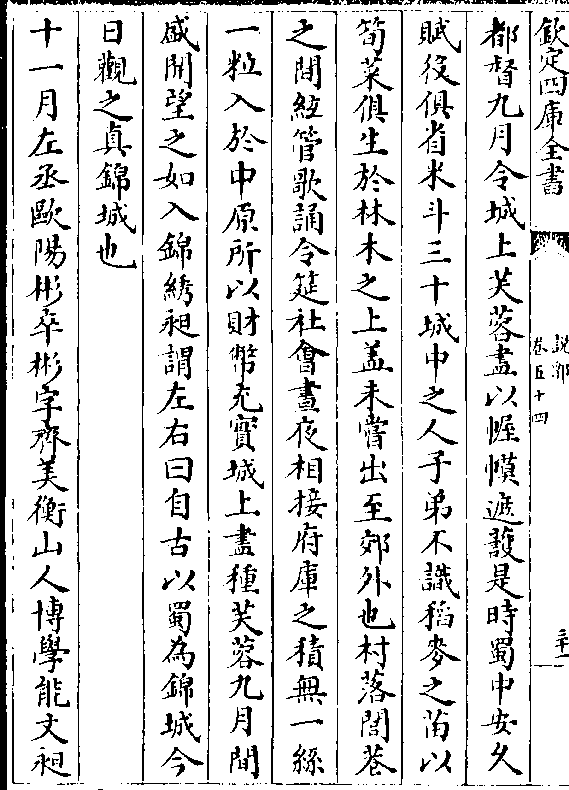 欽定四庫全書
說郛
卷五十四
三十一
都督九月令城上芙蓉盡以幄幙遮護是時蜀中安久
賦役俱省米斗三十城中之人子弟不識稻麥之苗以
筍菜俱生於林木之上盖未嘗出至郊外也村落閭巷
之間絃管歌誦令筵社會晝夜相接府庫之積無一絲
一粒入於中原所以財幣充實城上盡種芙蓉九月間
盛開望之如入錦綉昶謂左右曰自古以蜀為錦城今
日觀之真錦城也
十一月左丞歐陽彬卒彬字齊美衡山人博學能文昶